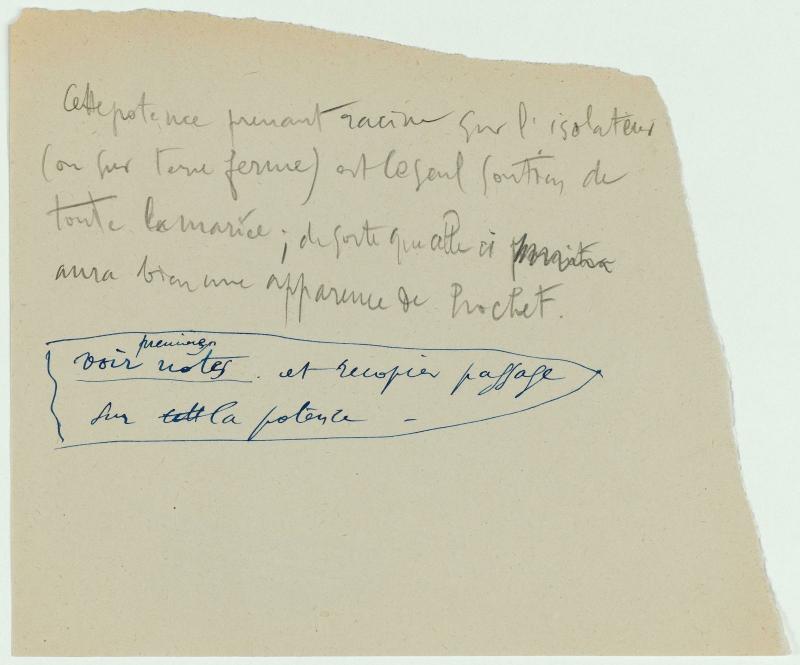 Cette potence prenant racine sur l'isolateur
(ou sur terre ferme) est le seul soutien de
toute la mariée ; de sorte que celle ci
aura bien une apparence de Crochet.
premières
voir notes et recopier passage
sur cette la potence –